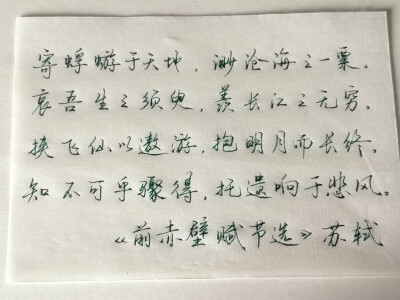 寄蜉蝣于天地，渺沧海之一粟。
哀吾生之须臾，羡长江之无穷。
挟飞仙以遨游，抱明月而长终。
知不可乎骤得，托遗响于悲风。
《前赤壁赋节选》苏轼